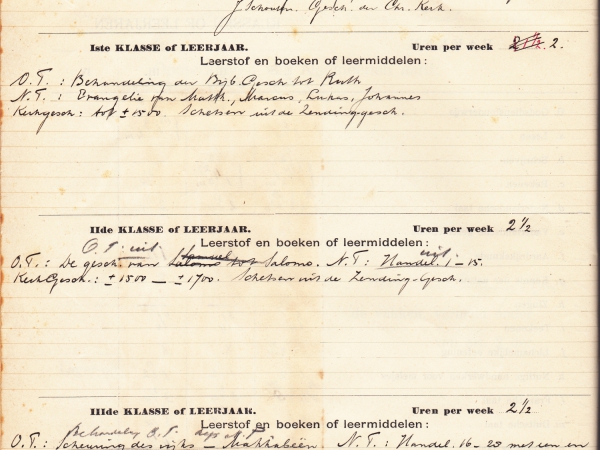 J. Schouten. Gesch. der Chr. Kerk.
Iste KLASSE of LEERJAAR. Uren per week 2 1/2 2.
Leerstof en boeken of leermiddelen:
O.T.: Behandeling der Bijb. Gesch tot Ruth
N.T.: Evangelie van Matth., Marcus, Lukas, Johannes
Kerkgesch: tot ± 1500. Schetsen uit de Zendinggesch.
IIde KLASSE of LEERJAAR. Uren per week 2 1/2
Leerstof en boeken of leermiddelen:
O.T. uit Samuel uit
O.T.: De gesch. van Salomo tot Salomo. N.T: Handel. 1-15.
KerkGesch.: ± 1500 — ± 1700. Schetsen uit de Zending-Gesch.
IIIde KLASSE of LEERJAAR. Uren per week 2 1/2
Leerstof en boeken of leermiddelen:
Behandeling O.T.
O.T.: Scheuring des rijks — Makkabeën N.T: Handel. 16-28 met een en